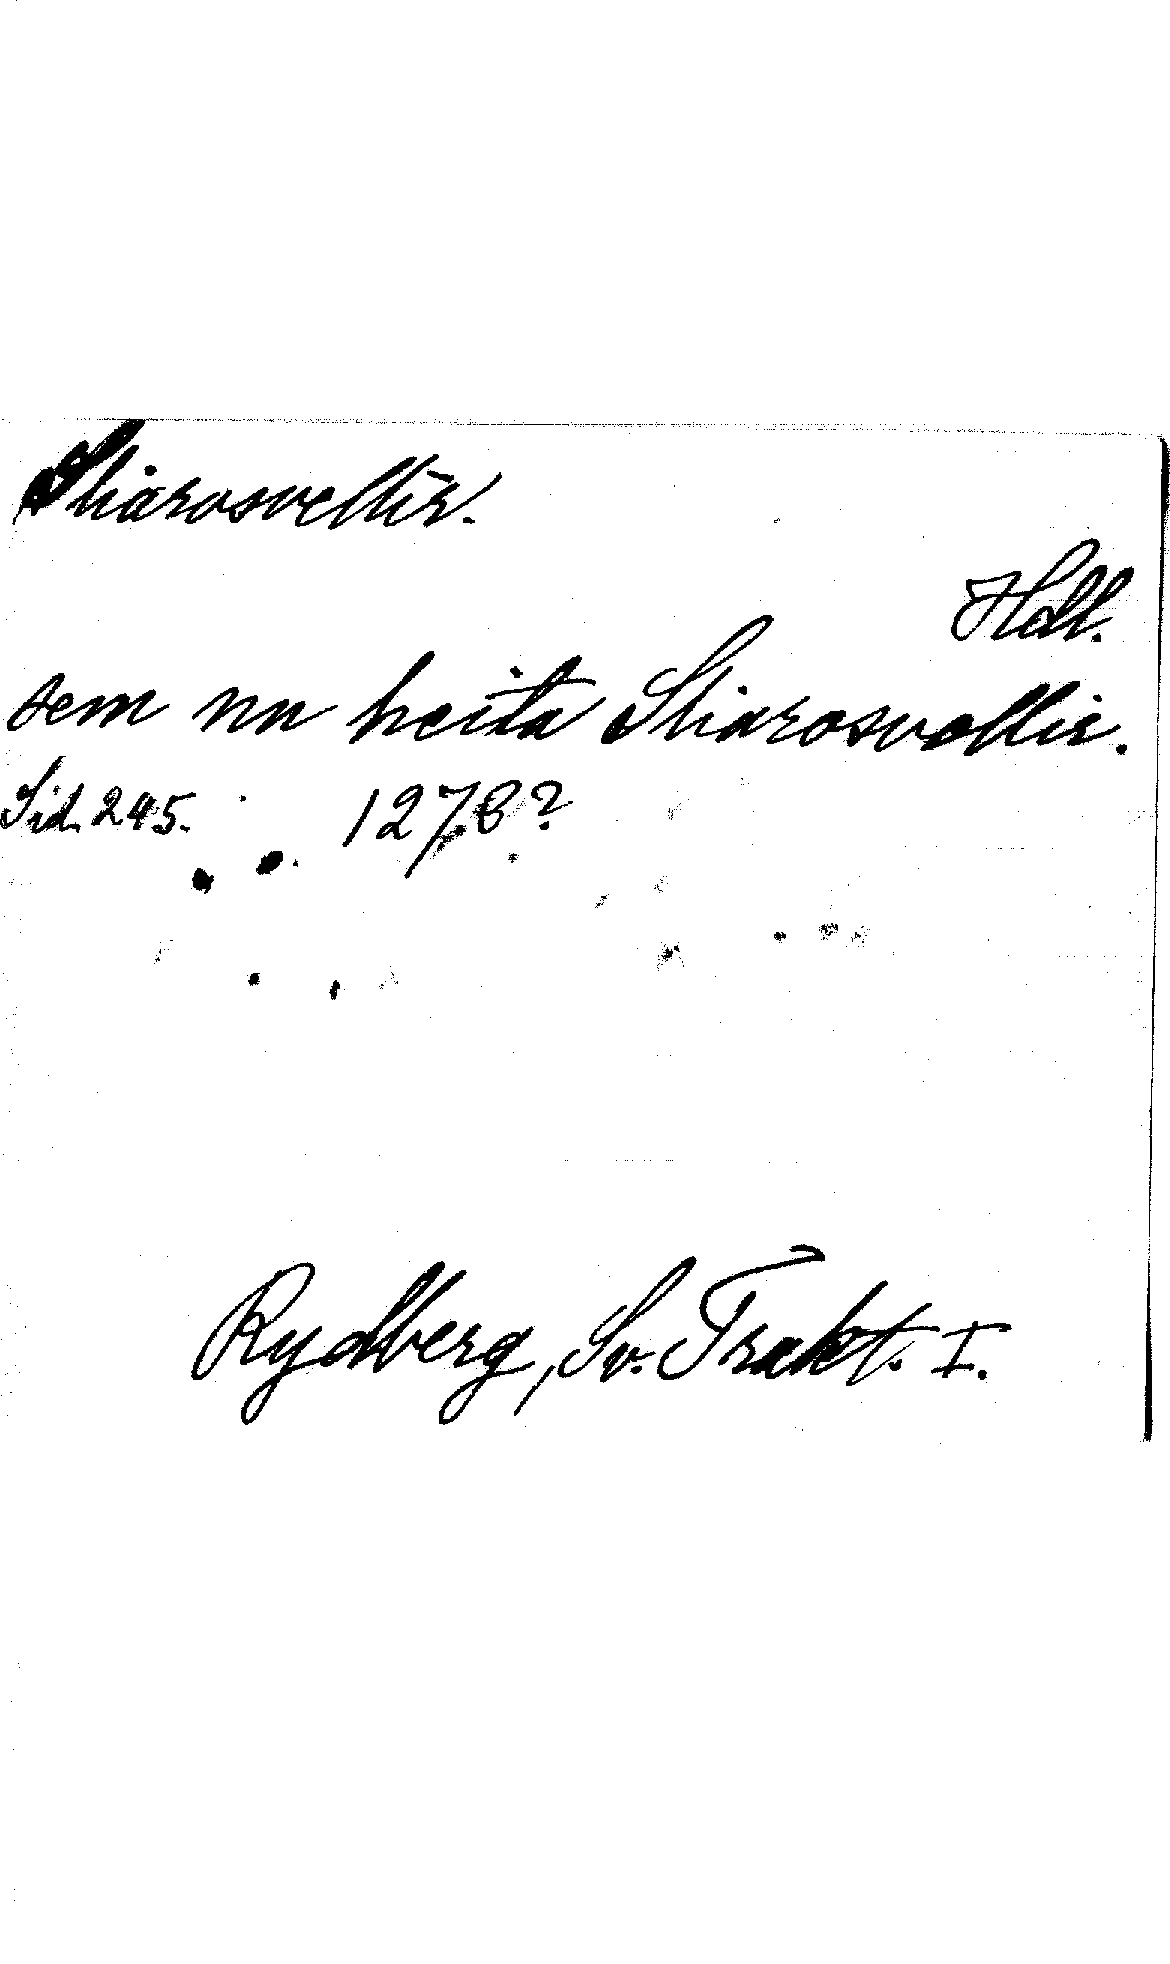 Stiarosvellir.
Hall.
sem nu heita Stiarosvollir.
Sid. 245. 1278?
Rydberg, Sv. Trakt. I.